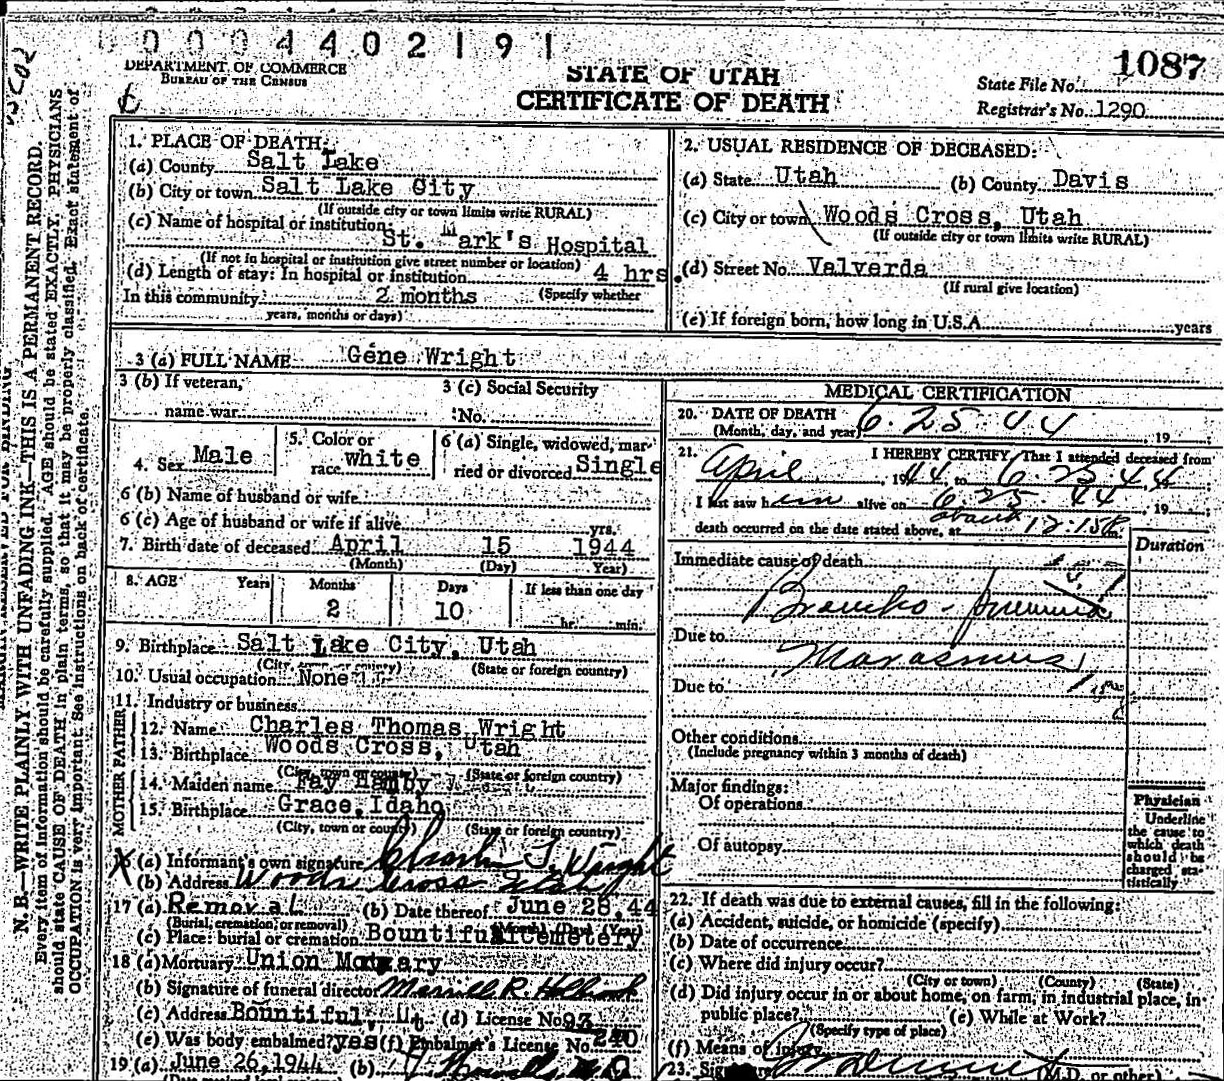 0004402191
DEPARTMENT OF COMMERCE
BUREAU OF THE CENSUS
STATE OF UTAH
CERTIFICATE OF DEATH
1087
State File No.
Registrar's No. 1290
N. B.—WRITE PLAINLY WITH UNFADING INK—THIS IS A PERMANENT RECORD.
Every item of information should be carefully supplied. AGE should be stated EXACTLY. PHYSICIANS
should state CAUSE OF DEATH in plain terms, so that it may be properly classified. Exact statement of
OCCUPATION is very important. See instructions on back of certificate.
1. PLACE OF DEATH:
(a) County Salt Lake
(b) City or town Salt Lake City
(If outside city or town limits write RURAL)
(c) Name of hospital or institution:
St. Mark's Hospital
(If not in hospital or institution give street number or location)
(d) Length of stay: In hospital or institution 4 hrs.
In this community 2 months (Specify whether
years, months or days)
2. USUAL RESIDENCE OF DECEASED:
(a) State Utah (b) County Davis
(c) City or town Woods Cross, Utah
(If outside city or town limits write RURAL)
(d) Street No. Valverda
(If rural give location)
(e) If foreign born, how long in U.S.A. years
3 (a) FULL NAME Gene Wright
3 (b) If veteran,
name war
3 (c) Social Security
No.
4. Sex Male
5. Color or
race white
6 (a) Single, widowed, mar-
ried or divorced Single
6 (b) Name of husband or wife
6 (c) Age of husband or wife if alive yrs.
7. Birth date of deceased April 15 1944
(Month) (Day) Year)
8. AGE Years Months Days If less than one day
2 10 hr. min.
9. Birthplace Salt Lake City, Utah
(City, town or county) (State or foreign country)
10. Usual occupation None
11. Industry or business
FATHER
12. Name Charles Thomas Wright
13. Birthplace Woods Cross, Utah
(City, town or county) (State or foreign country)
MOTHER
14. Maiden name Fay
15. Birthplace Grace, Idaho
(City, town or county) (State or foreign country)
(a) Informant's own signature Charles T. Wright
(b) Address Woods Cross Utah
17 (a) Removal (b) Date thereof June 28, 44
(Burial, cremation, or removal) (Month) (Day) (Year)
(c) Place: burial or cremation Bountiful Cemetery
18 (a) Mortuary Union Mortuary
(b) Signature of funeral director Merrill R. Holbrook
(c) Address Bountiful, Ut (d) License No 93
(e) Was body embalmed? yes (f) Embalmer's License No. 240
19 (a) June 26, 1944 (b)
MEDICAL CERTIFICATION
20. DATE OF DEATH 6 25 44
(Month, day, and year) 19
21. I HEREBY CERTIFY, That I attended deceased from
April 1944 to 6 25 44
I last saw him alive on 6 25 44 19
death occurred on the date stated above, at about 12:15 P m.
Duration
Immediate cause of death
Broncho-pneumonia
Due to
Marasmus
Due to
Other conditions
(Include pregnancy within 3 months of death)
Major findings:
Of operations
Of autopsy
Physician
Underline
the cause to
which death
should be
charged sta-
tistically
22. If death was due to external causes, fill in the following:
(a) Accident, suicide, or homicide (specify)
(b) Date of occurrence
(c) Where did injury occur?
(City or town) (County) (State)
(d) Did injury occur in or about home, on farm, in industrial place, in
public place? (e) While at Work?
(Specify type of place)
(f) Means of injury
23. (M.D. or other)